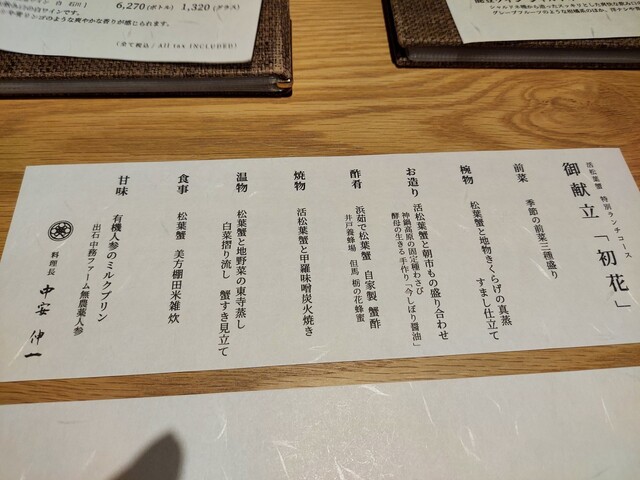 6,270(ボトル) 1,320(グラス)
リンゴのような爽やかな香りが感じられます。
(全て税込/All tax INCLUDED)
活松葉蟹 特別ランチコース
御献立「初花」
前菜
季節の前菜三種盛り
椀物
松葉蟹と地物きくらげの真蒸
すまし仕立て
お造り
活松葉蟹と朝市もの盛り合わせ
神鍋高原の固定種わさび
酵母の生きる 手作り「今しぼり醤油」
酢肴
浜茹で松葉蟹 自家製 蟹酢
井戸養蜂場 但馬 栃の花蜂蜜
焼物
活松葉蟹と甲羅味噌炭火焼き
温物
松葉蟹と地野菜の東寺蒸し
白菜摺り流し 蟹すき見立て
食事
松葉蟹 美方棚田米雑炊
甘味
有機人参のミルクプリン
出石 中務ファーム無農薬人参
料理長
中安 伸一